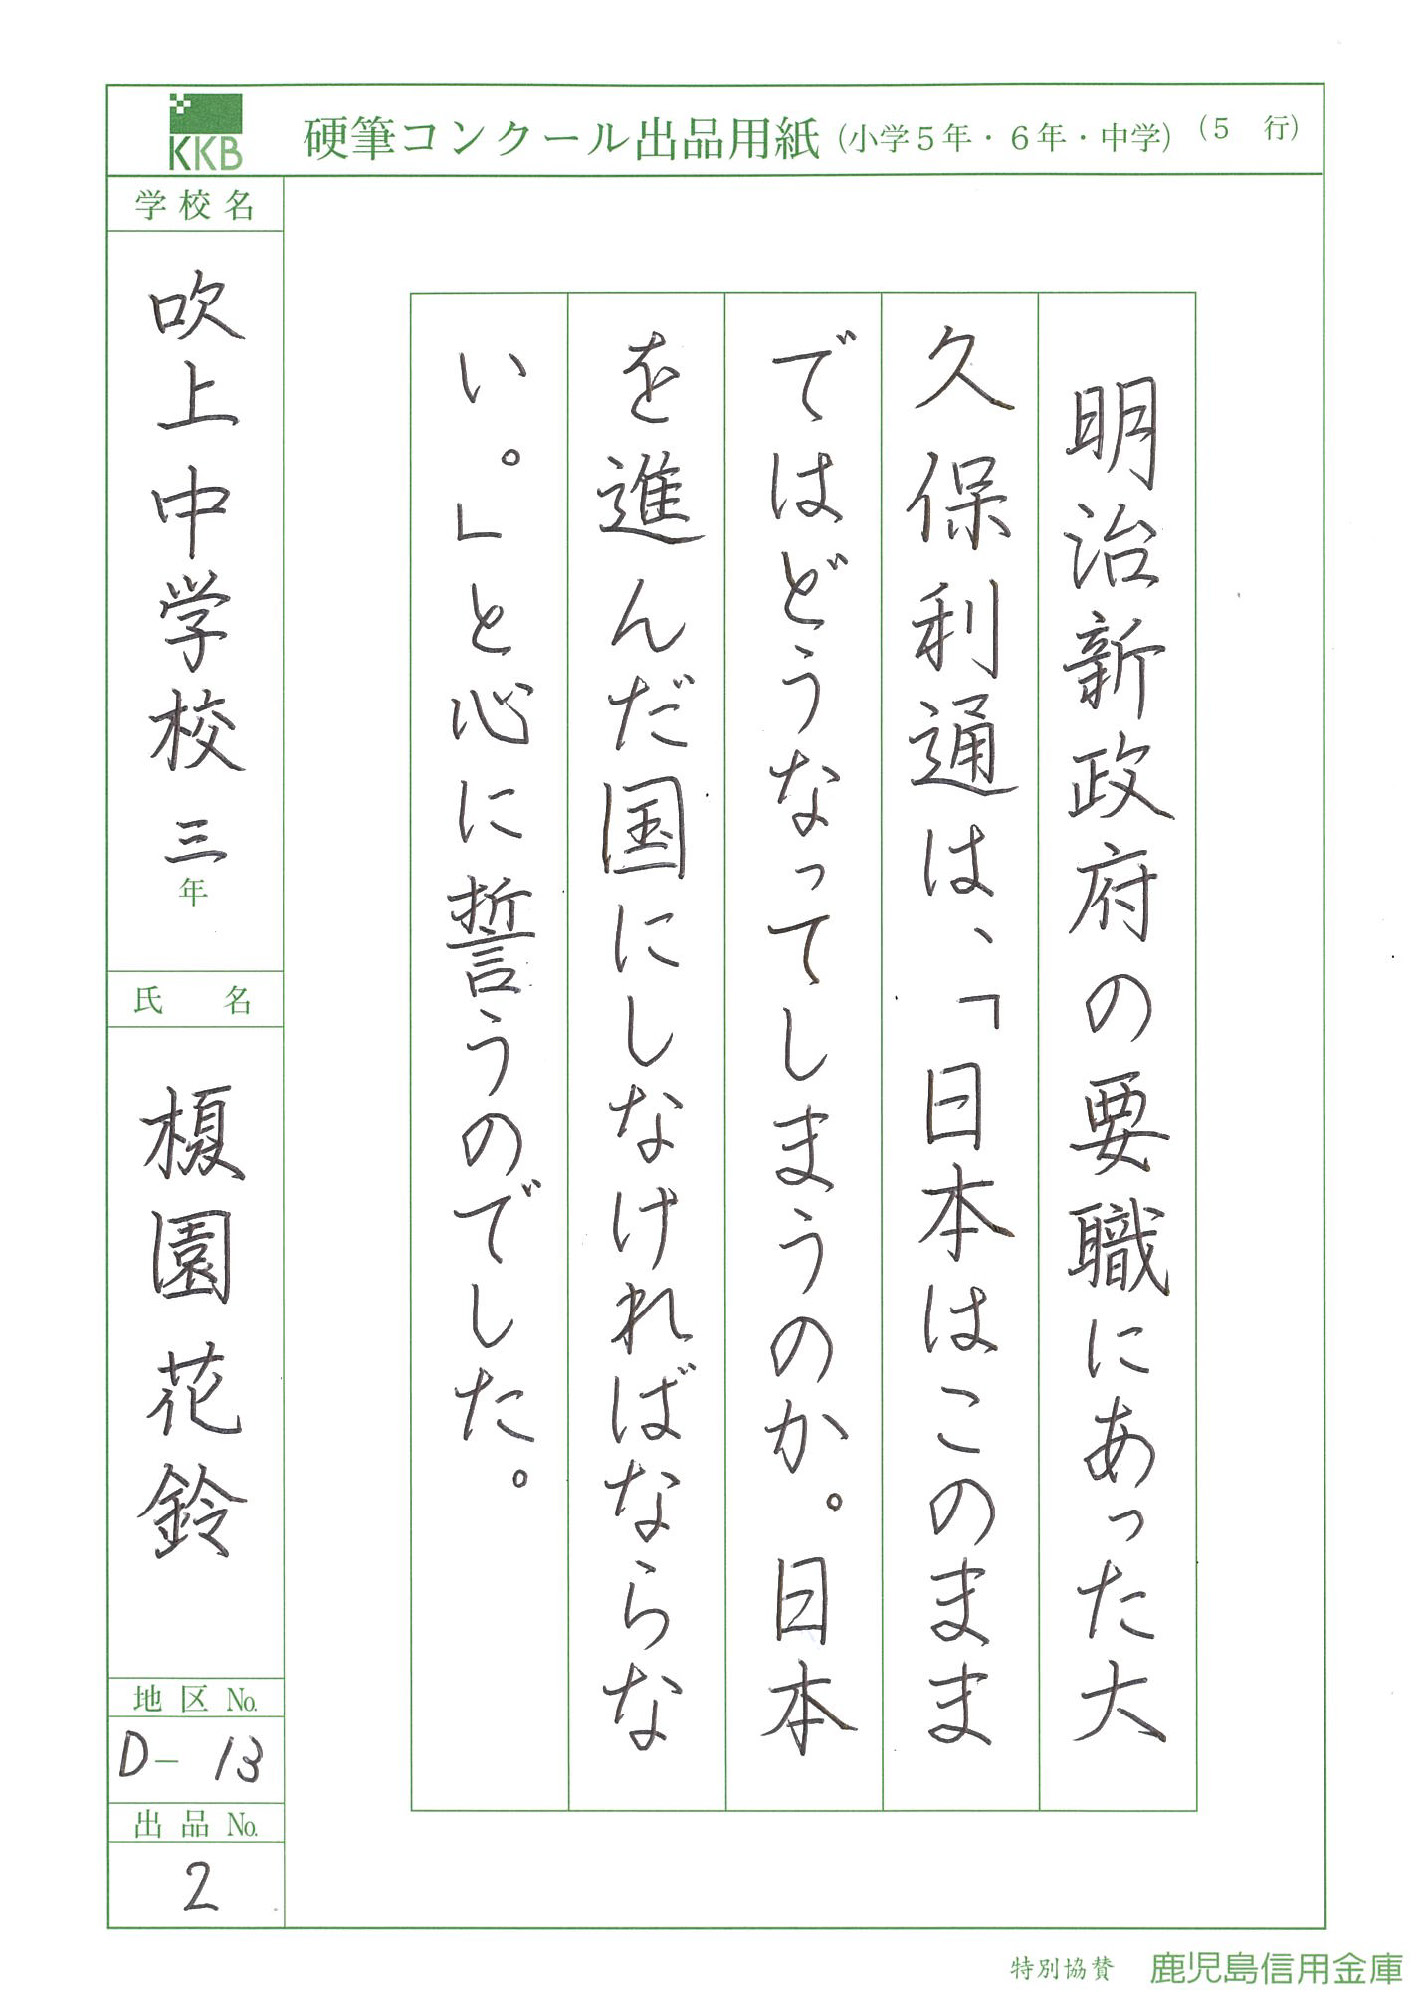 KKB
硬筆コンクール出品用紙(小学5年・6年・中学)(5 行)
明治新政府の要職にあった大
久保利通は、「日本はこのまま
ではどうなってしまうのか。日本
を進んだ国にしなければならな
い。」と心に誓うのでした。
学校名
吹上中学校 三年
氏 名
榎園花鈴
地区 No.
D-13
出品 No.
2
特別協賛 鹿児島信用金庫